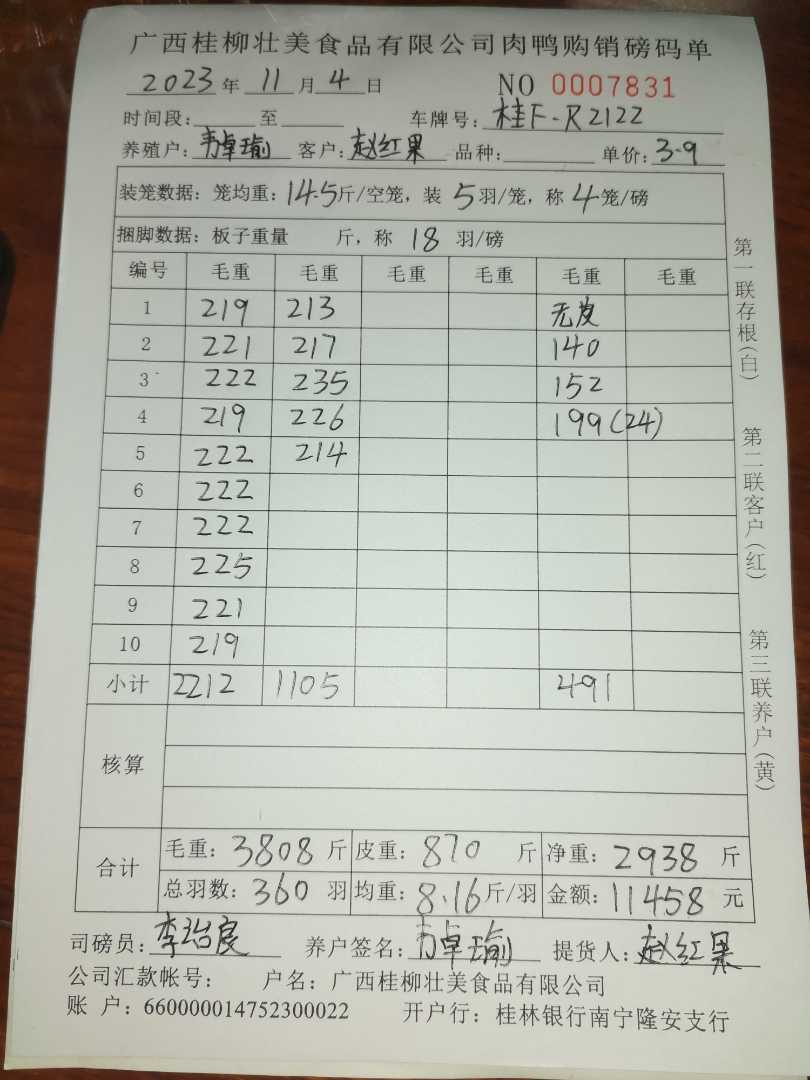 广西桂柳壮美食品有限公司肉鸭购销磅码单
2023年 11月4日 NO 0007831
时间段: 至 车牌号: 桂F-R2122
养殖户: 韦卓瑜 客户: 赵红果 品种: 单价: 3.9
装笼数据: 笼均重: 14.5斤/空笼, 装 5羽/笼, 称 4笼/磅
捆脚数据: 板子重量 斤, 称 18 羽/磅
编号 毛重 毛重 毛重 毛重 毛重 毛重
1 219 213 无发
2 221 217 140
3 222 235 152
4 219 226 199(24)
5 222 214
6 222
7 222
8 225
9 221
10 219
小计 2212 1105 491
核算
合计
毛重: 3808 斤 皮重: 870 斤 净重: 2938 斤
总羽数: 360 羽 均重: 8.16斤/羽 金额: 11458 元
司磅员: 李治良 养户签名: 韦卓瑜 提货人: 赵红果
公司汇款帐号: 户名: 广西桂柳壮美食品有限公司
账 户: 660000014752300022 开户行: 桂林银行南宁隆安支行
第一联存根(白)
第二联客户(红)
第三联养户(黄)